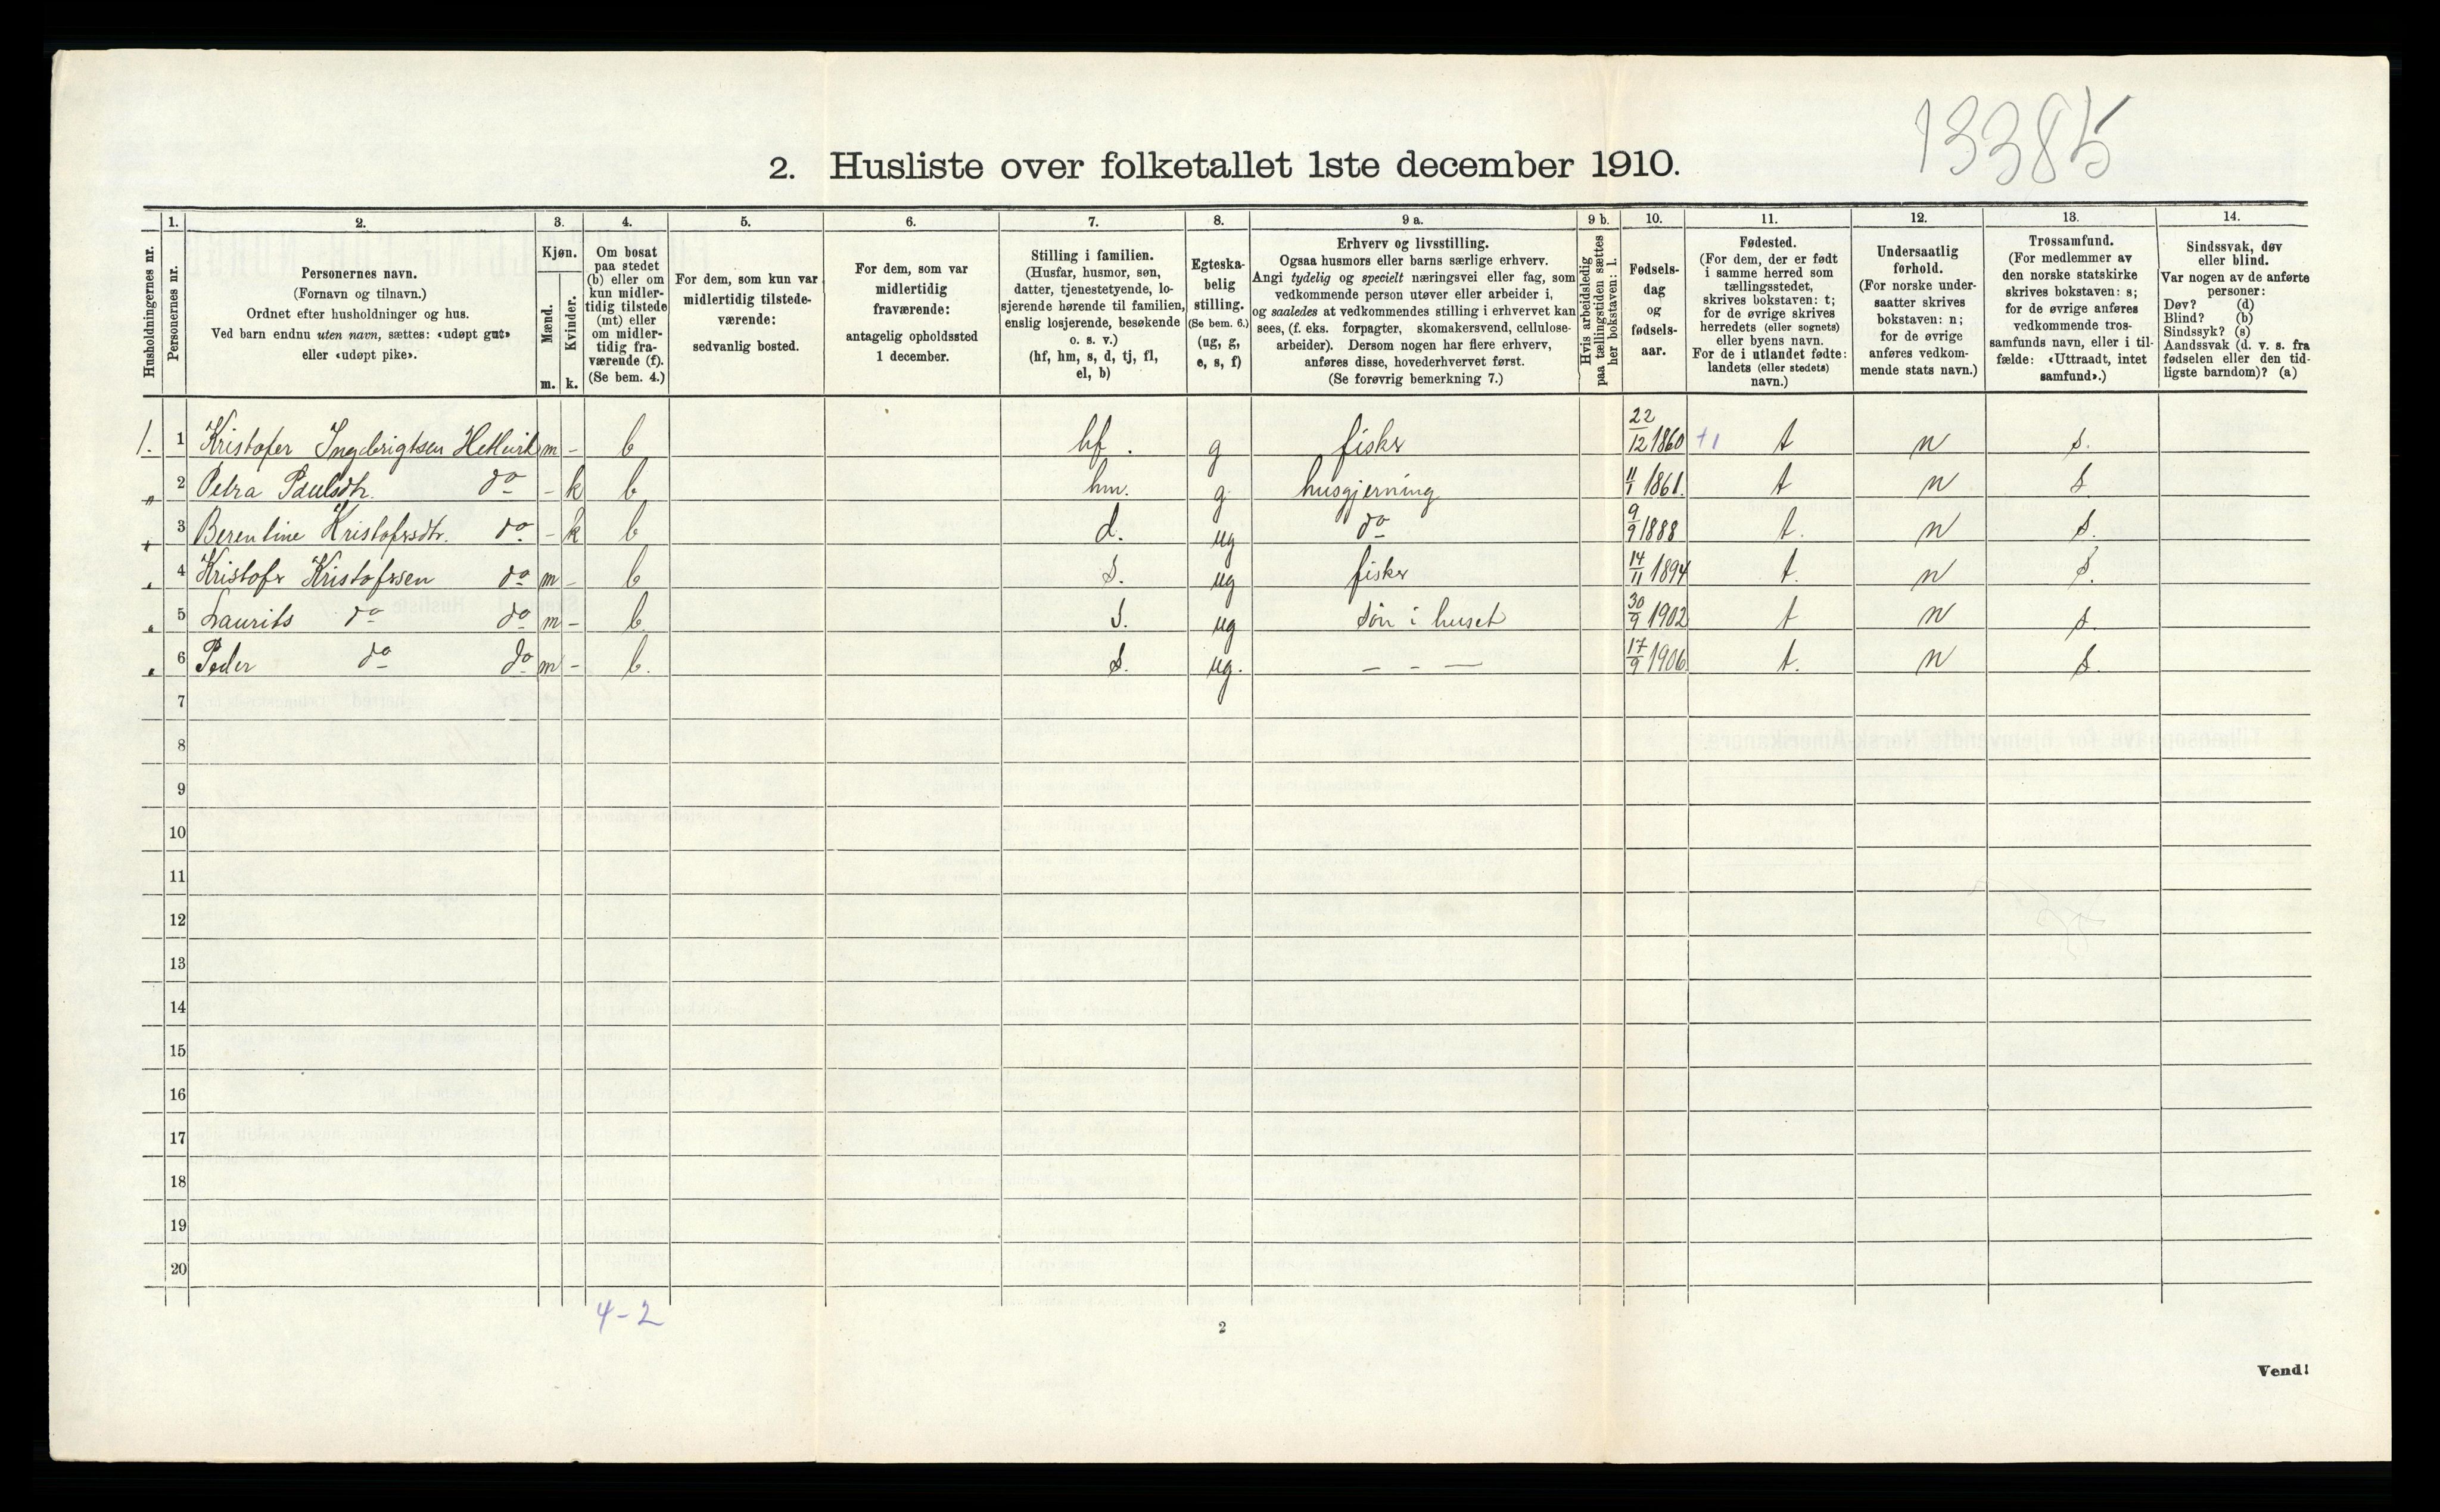 13385
2. Husliste over folketallet 1ste december 1910.
Husholdningernes nr.
1. Personernes nr.
2. Personernes navn. (Fornavn og tilnavn.) Ordnet efter husholdninger og hus. Ved barn endnu uten navn, sættes: «udøpt gut» eller «udøpt pike».
3. Kjøn. Mænd. m. Kvinder. k.
4. Om bosat paa stedet (b) eller om kun midlertidig tilstede (mt) eller om midlertidig fraværende (f). (Se bem. 4.)
5. For dem, som kun var midlertidig tilstedeværende: sedvanlig bosted.
6. For dem, som var midlertidig fraværende: antagelig opholdssted 1 december.
7. Stilling i familien. (Husfar, husmor, søn, datter, tjenestetyende, losjerende hørende til familien, enslig losjerende, besøkende o. s. v.) (hf, hm, s, d, tj, fl, el, b)
8. Egteskabelig stilling. (Se bem. 6.) (ug, g, e, s, f)
9 a. Erhverv og livsstilling. Ogsaa husmors eller barns særlige erhverv. Angi tydelig og specielt næringsvei eller fag, som vedkommende person utøver eller arbeider i, og saaledes at vedkommendes stilling i erhvervet kan sees, (f. eks. forpagter, skomakersvend, cellulosearbeider). Dersom nogen har flere erhverv, anføres disse, hovederhvervet først. (Se forøvrig bemerkning 7.)
9 b. Hvis arbeidsledig paa tællingstiden sættes her bokstaven: l.
10. Fødselsdag og fødselsaar.
11. Fødested. (For dem, der er født i samme herred som tællingsstedet, skrives bokstaven: t; for de øvrige skrives herredets (eller sognets) eller byens navn. For de i utlandet fødte: landets (eller stedets) navn.)
12. Undersaatlig forhold. (For norske undersaatter skrives bokstaven: n; for de øvrige anføres vedkommende stats navn.)
13. Trossamfund. (For medlemmer av den norske statskirke skrives bokstaven: s; for de øvrige anføres vedkommende trossamfunds navn, eller i tilfælde: «Uttraadt, intet samfund».)
14. Sindssvak, døv eller blind. Var nogen av de anførte personer: Døv? (d) Blind? (b) Sindssyk? (s) Aandssvak (d. v. s. fra fødselen eller den tidligste barndom)? (a)
1. 1 Kristofer Ingebrigtsen Hellvik m - b hf. g fisker 22/12 1860 +1 t n s.
" 2 Petra Paulsdtr. do - k b hm. g husgjerning 11/1 1861. t n s.
" 3 Berentine Kristofersdtr. do - k b d. ug do 9/9 1888 t. n s.
" 4 Kristofer Kristofersen do m - b s. ug fisker 14/11 1894 t. n s.
" 5 Laurits do do m - b s. ug søn i huset 30/9 1902 t n s.
" 6 Peder do do m - b. s. ug. - - - 17/9 1906 t. n s.
7
8
9
10
11
12
13
14
15
16
17
18
19
20
4-2
2
Vend!